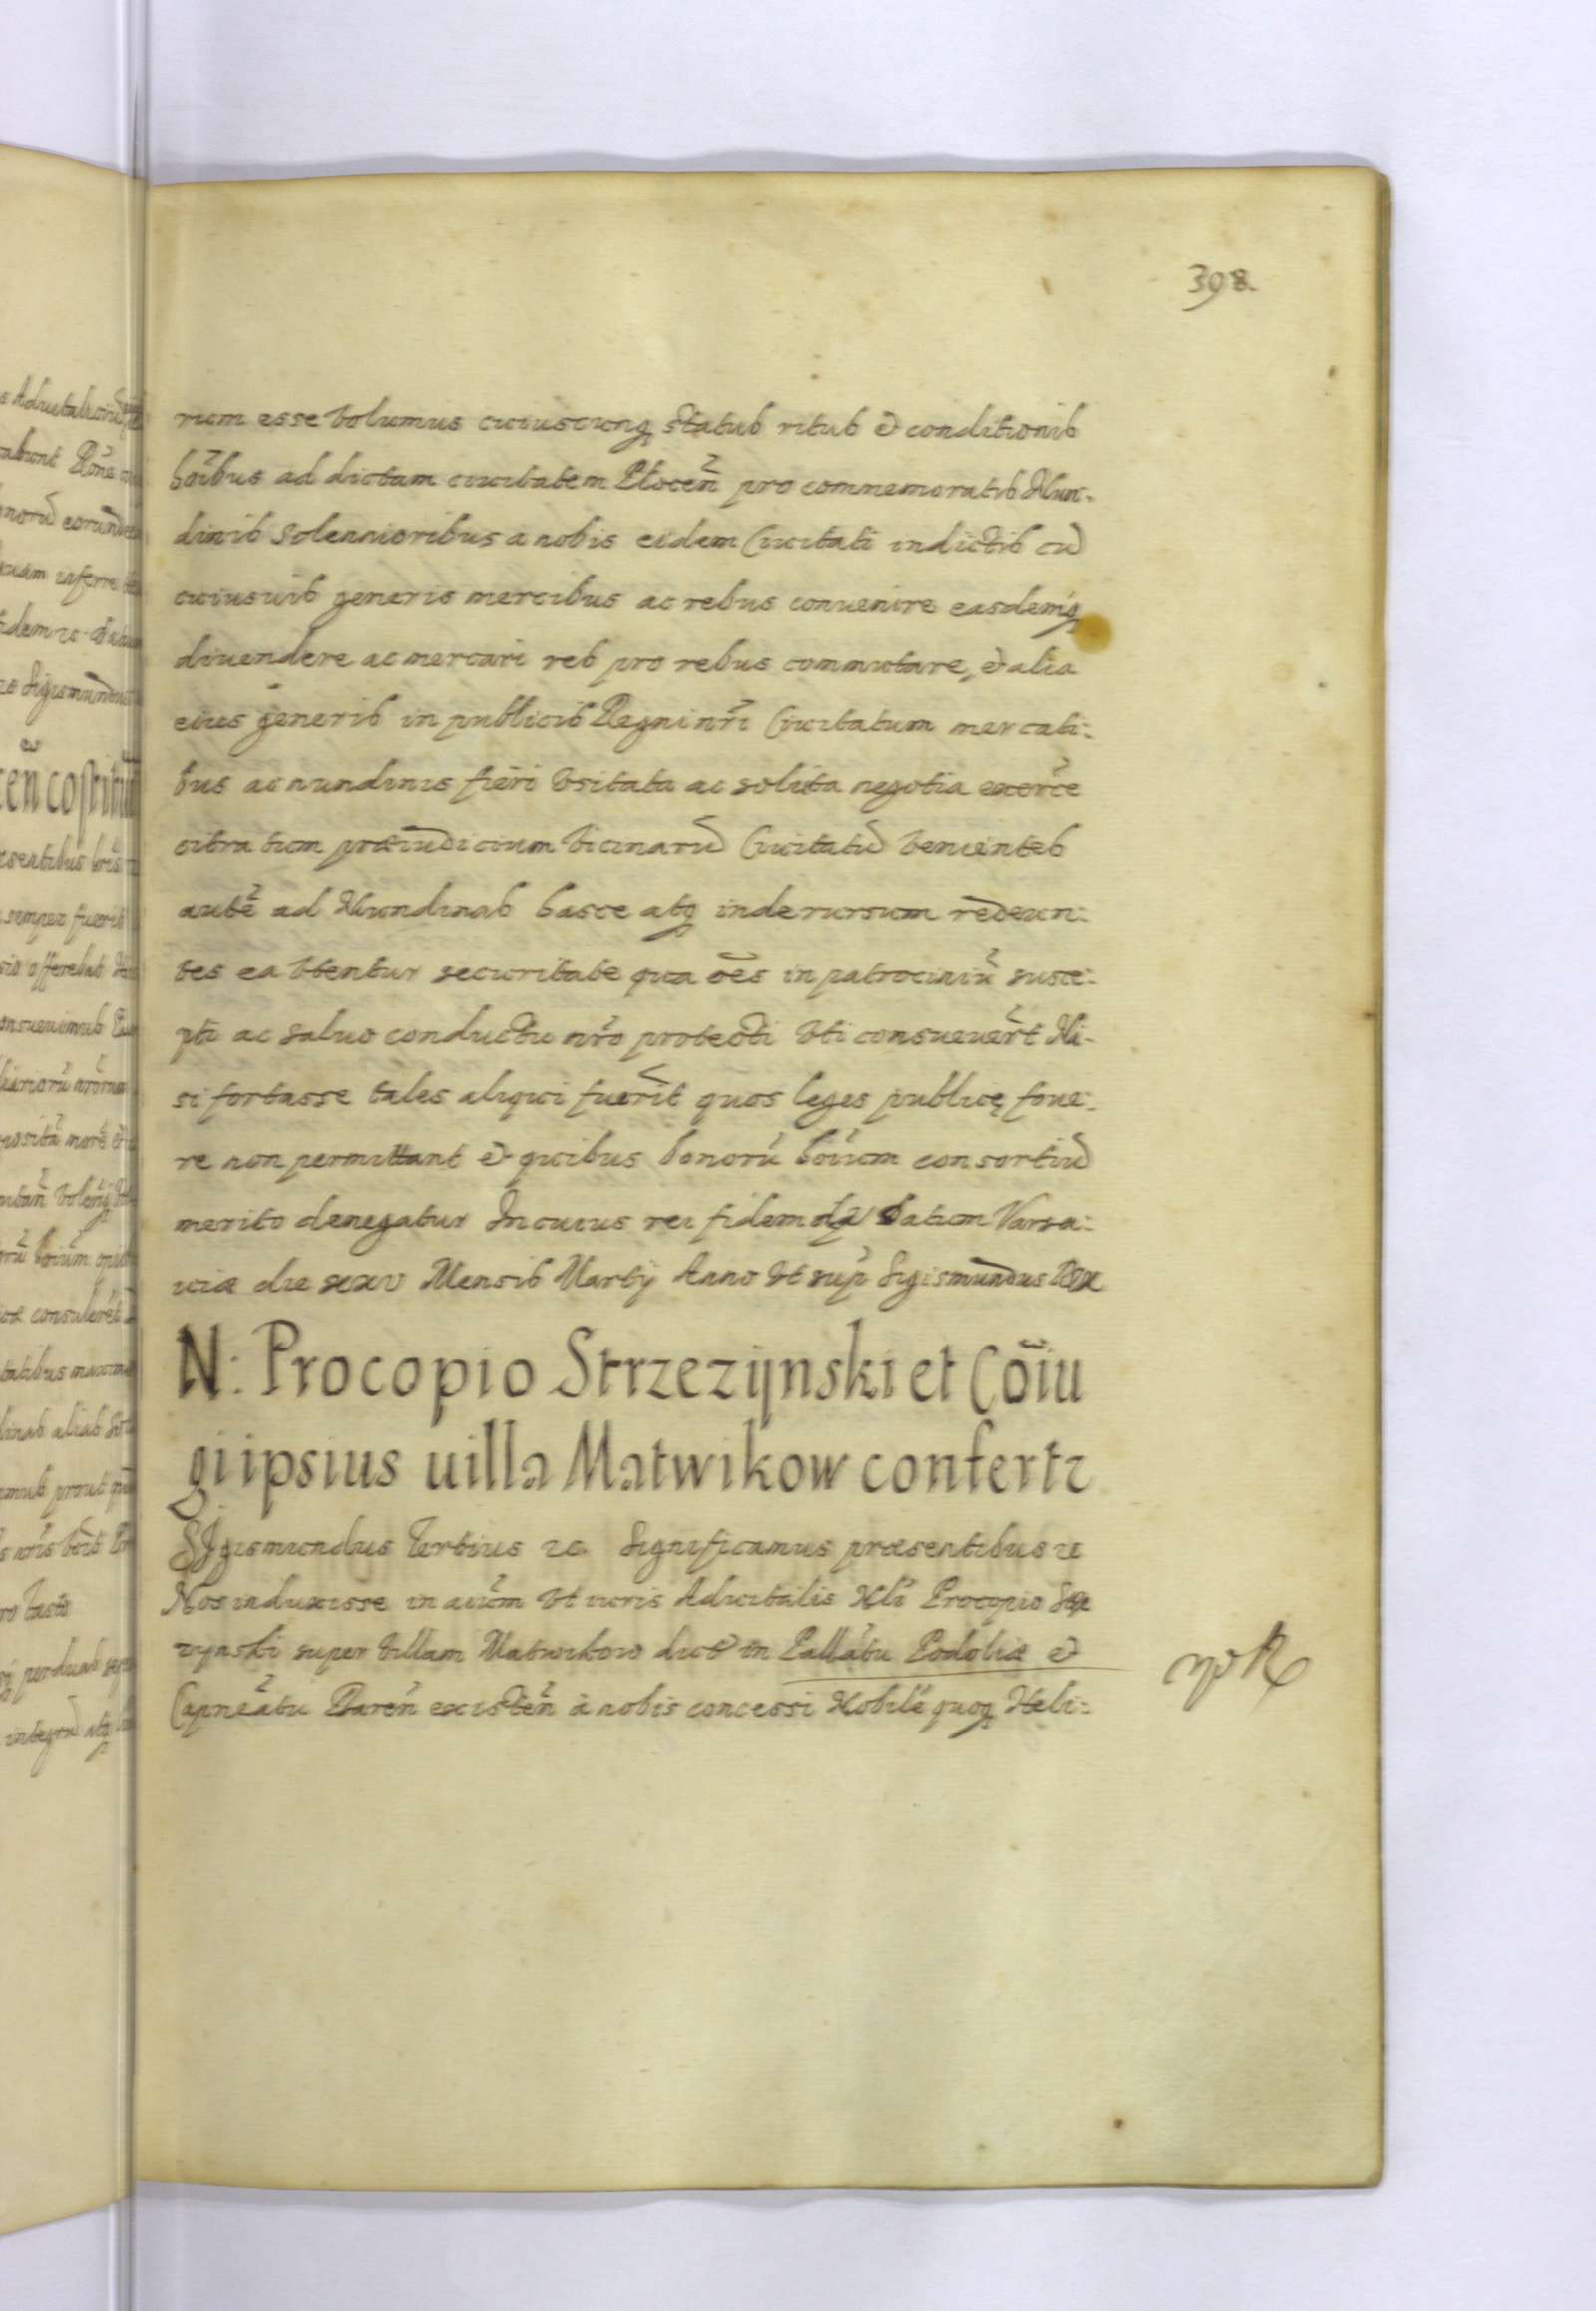 398.
rum esse volumus cuiuscunq̨ status ritus et conditionis
hoı̃bus ad dictam ciuitatem Plocen̄ pro commemoratis Nun-
dinis solennioribus a nobis eidem Ciuitati indictis cū
cuiusuis generis mercibus ac rebus conuenire easdemq̨
diuendere ac mercari res pro rebus commutare, et alia
eius generis in publicis Regni nr̄i Ciuitatum mercati:
bus ac nundinis fieri vsitata ac solita negotia exerc̄e
citra tum præiudicium vicinarū Ciuitatū venientes
autē ad Nundinas hasce atq̨ inde rursum redeun:
tes ea vtentur securitate qua oēs in patrociniū susce:
pti ac saluo conductu nr̄o protecti vti consueuer̄t Ni-
si fortasse tales aliqui fuer̄it quos leges publicę foue:
re non permittant et quibus bonorū hoı̄um consortiū
merito denegatur In cuius rei fidem Datum Varsa:
uiæ die xxv Mensis Martij Anno vt sup̄ Sigismundus Rex
N: Procopio Strzezijnski et Cōiu
gi ipsius uilla Matwikow confertr
SIgismundus Tertius ꝛc. Significamus præsentibus ꝛc
Nos induxisse in aı̄um vt iuris Aduitalis Nl̄i Procopio Strze
zynski super villam Matwikow dict in Pallātu Podoliæ et
Capneātu Baren̄ existen̄ à nobis concessi Nobilē quoq̨ Heli: